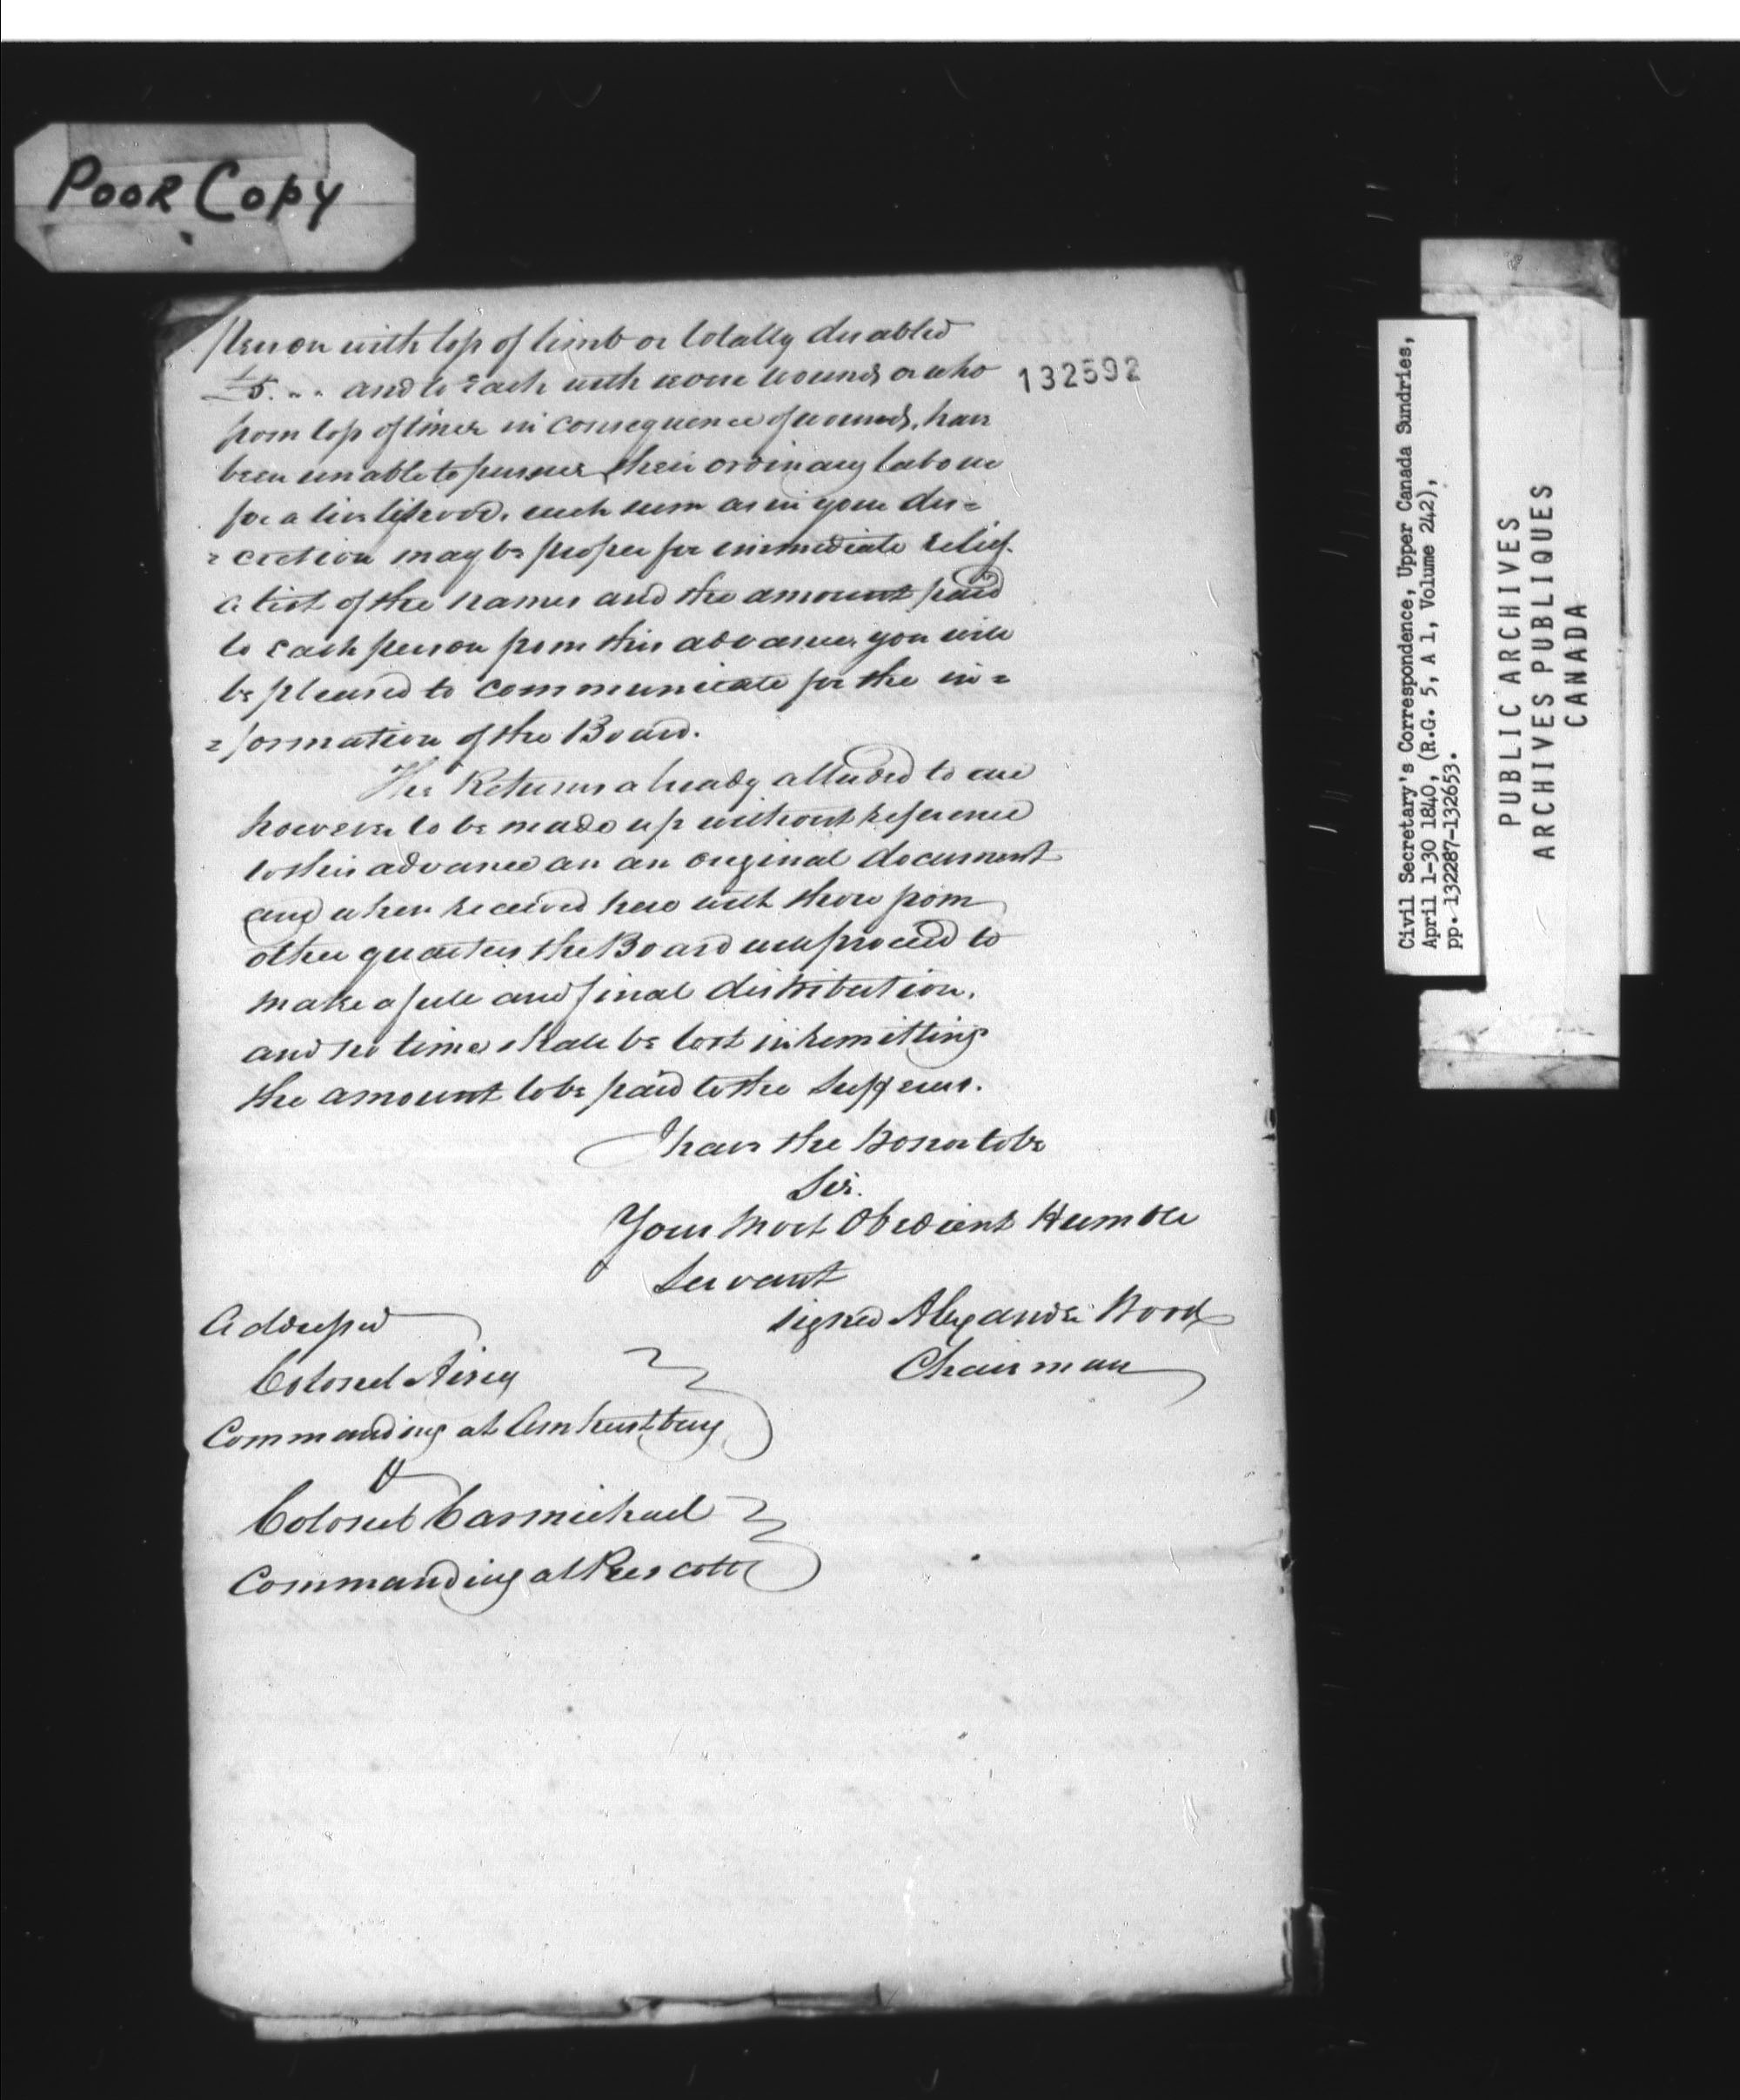 Poor Copy
132592
person with loss of limb or totally disabled
£5. .. and to each with severe wounds or who
from loss of time in consequence of wounds, have
been unable to pursue their ordinary labour
for a livelihood, such sum as in your dis=
=cretion may be proper for immediate relief.
a list of the names and the amount paid
to each person from this advance you will
be pleased to communicate for the in=
=formation of the Board.
The Returns already alluded to are
however to be made up without reference
to this advance as an original document
and when received here with those from
other quarters the Board will proceed to
make a full and final distribution,
and no time shall be lost in remitting
the amount to be paid to the Sufferers.
I have the honor to be
Sir.
Your Most Obedient Humble
Servant
signed Alexander Wood
Chairman
Addressed
Colonel Airey
Commanding at Amherstburg
&
Colonel Carmichael
Commanding at Prescott
Civil Secretary's Correspondence, Upper Canada Sundries,
April 1-30 1840, (R.G. 5, A 1, Volume 242),
pp. 132287-132653.
PUBLIC ARCHIVES
ARCHIVES PUBLIQUES
CANADA